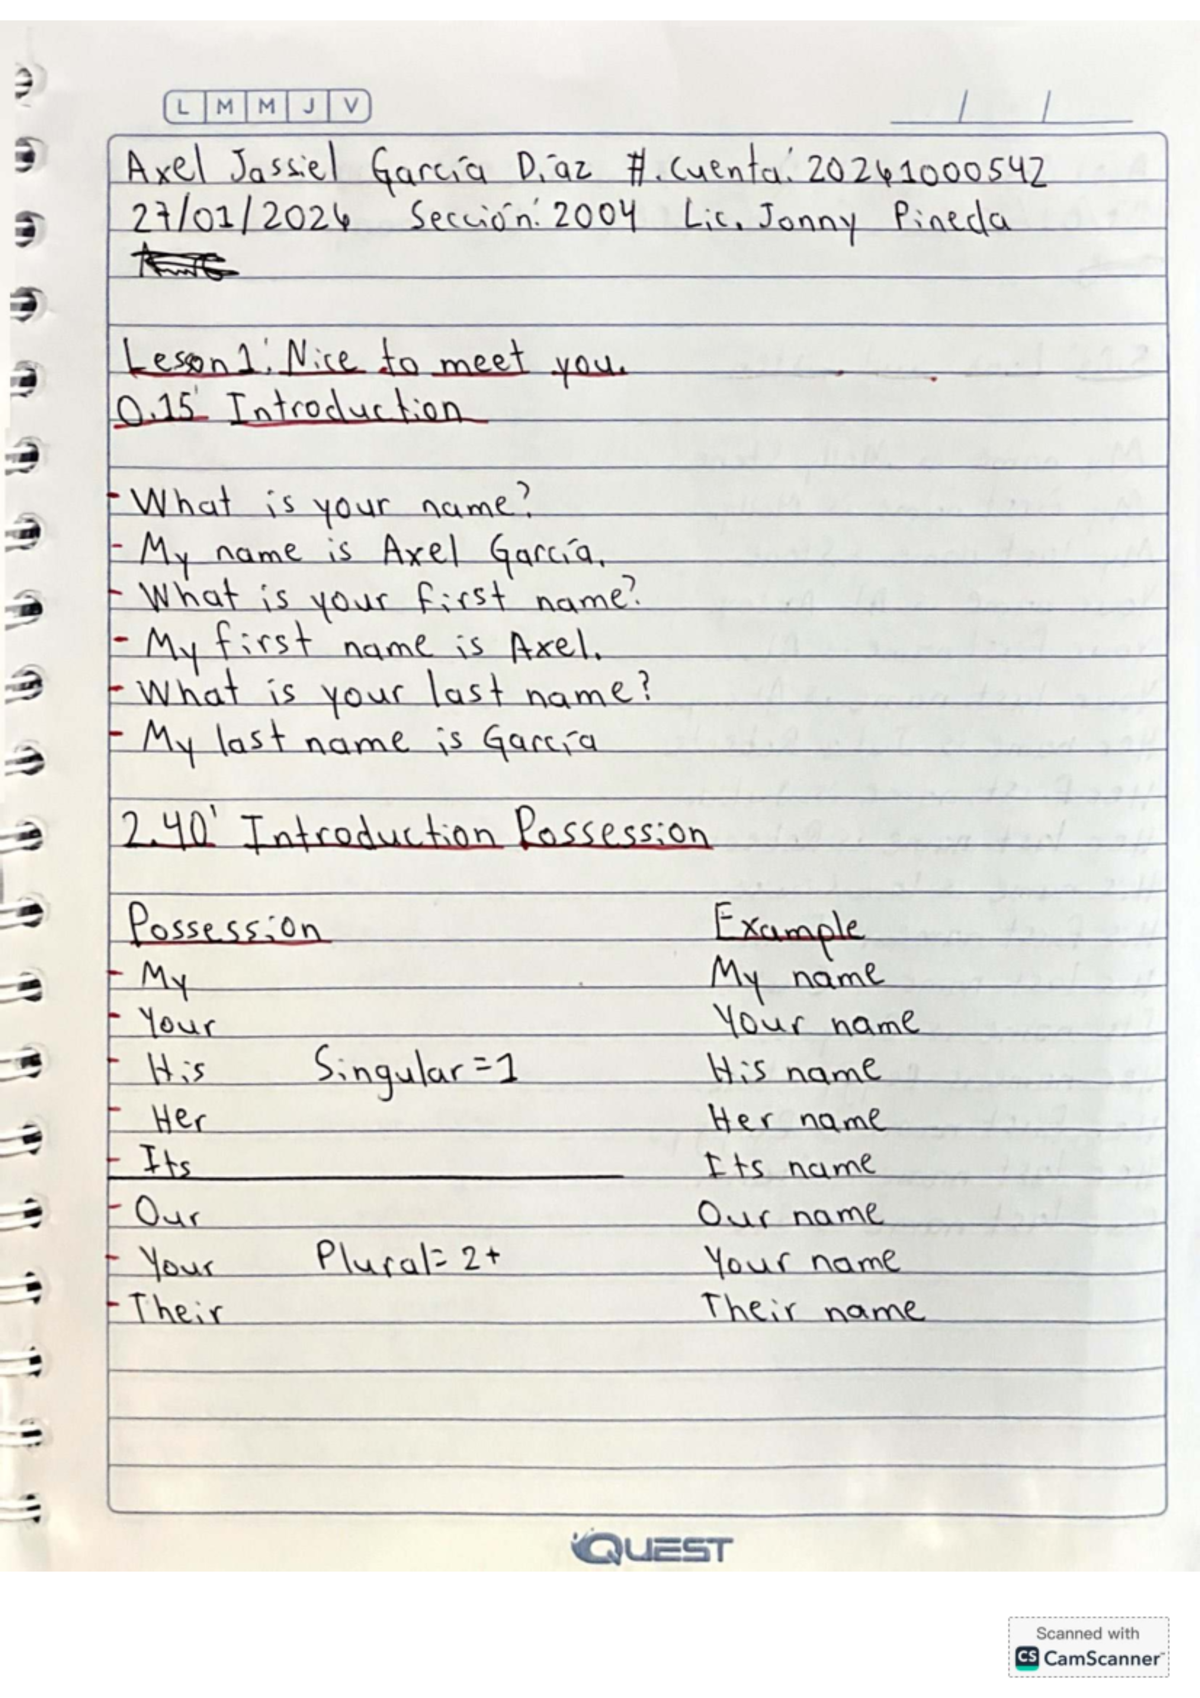 L M M J V
Axel Jassiel García Díaz #. Cuenta: 20241000542
27/01/2024 Sección: 2004 Lic. Jonny Pineda
Leson 1: Nice to meet you.
0.15' Introduction
- What is your name?
- My name is Axel García.
- What is your first name?
- My first name is Axel.
- What is your last name?
- My last name is García
2.40' Introduction Possession
Possession Example
- My My name
- Your Your name
- His Singular=1 His name
- Her Her name
- Its Its name
- Our Our name
- Your Plural= 2+ Your name
- Their Their name
QUEST
Scanned with
CS CamScanner